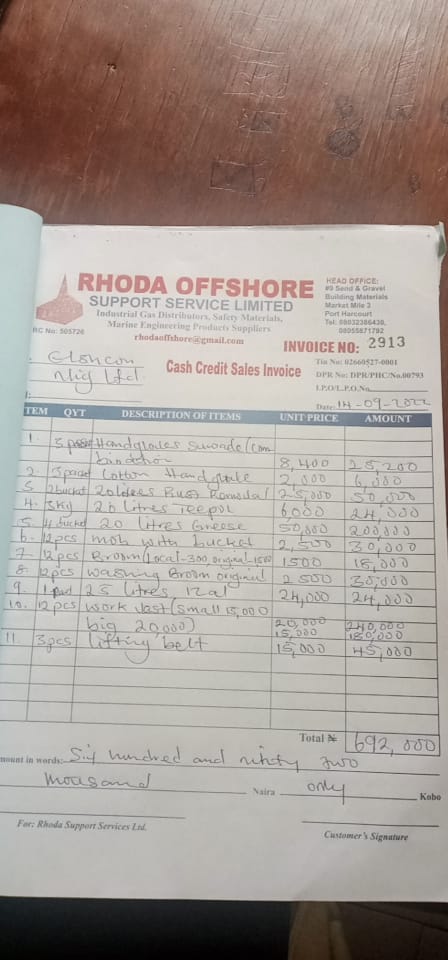 RHODA OFFSHORE
SUPPORT SERVICE LIMITED
Industrial Gas Distributors, Safety Materials,
Marine Engineering Products Suppliers
rhodaoffshore@gmail.com
RC No: 505726
HEAD OFFICE:
#9 Send & Gravel
Building Materials
Market Mile 3
Port Harcourt
Tel: 08032386430,
08055871792
INVOICE NO: 2913
Nig Ltd.
Cash Credit Sales Invoice
Tin No: 02660527-0001
DPR No: DPR/PHC/No.00793
I.P.O/L.P.O.No
Date: 14-09-2022
TEM QYT DESCRIPTION OF ITEMS UNIT PRICE AMOUNT
1. 3 Handgloves (Com
8,400 25,200
2. 3 packet Cotton Handglove 2,000 6,000
3. 2 bucket 20 litres Rust 25,000 50,000
4. 5kg 20 litres Teepol 6000 24,000
5. 4 bucket 20 litres Greese 50,000 200,000
6. 12pcs mob with bucket 2,500 30,000
7. 12pcs Broom (Local-300, original-1500 1500 18,000
8. 12pcs washing Broom original 2500 30,000
9. 1 25 litres, izal 24,000 24,000
10. 12pcs work vest (small 15,000
big 20,000) 20,000 240,000
15,000 180,000
11. 3pcs lifting belt 15,000 45,000
Total ₦ 692,000
mount in words: Six hundred and ninty two
thousand Naira only Kobo
For: Rhoda Support Services Ltd.
Customer's Signature